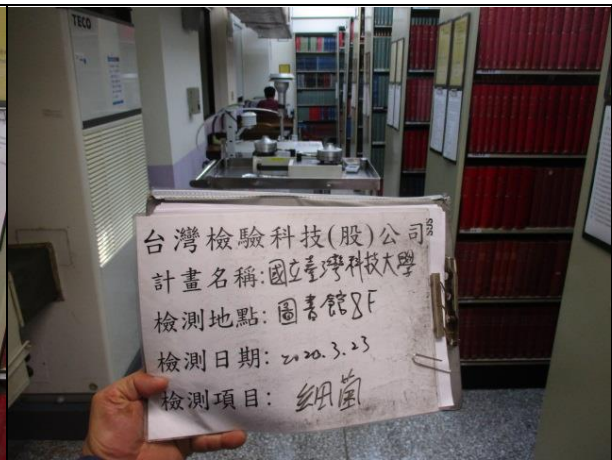 TECO
台灣檢驗科技(股)公司
SGS
計畫名稱:國立臺灣科技大學
檢測地點:圖書館8F
檢測日期:2020.3.23
檢測項目:細菌